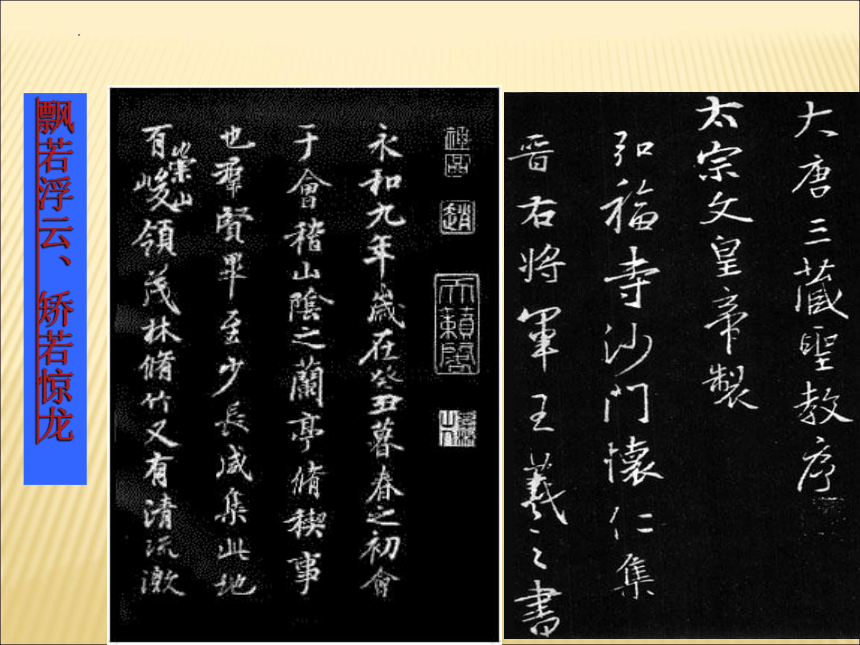 飘若浮云、矫若惊龙
神品
趙
天籟閣
永和九年歲在癸丑暮春之初會
于會稽山陰之蘭亭脩禊事
也羣賢畢至少長咸集此地
有崇山峻領茂林脩竹又有清流激
大唐三藏聖教序
太宗文皇帝製
弘福寺沙門懷仁集
晉右將軍王羲之書